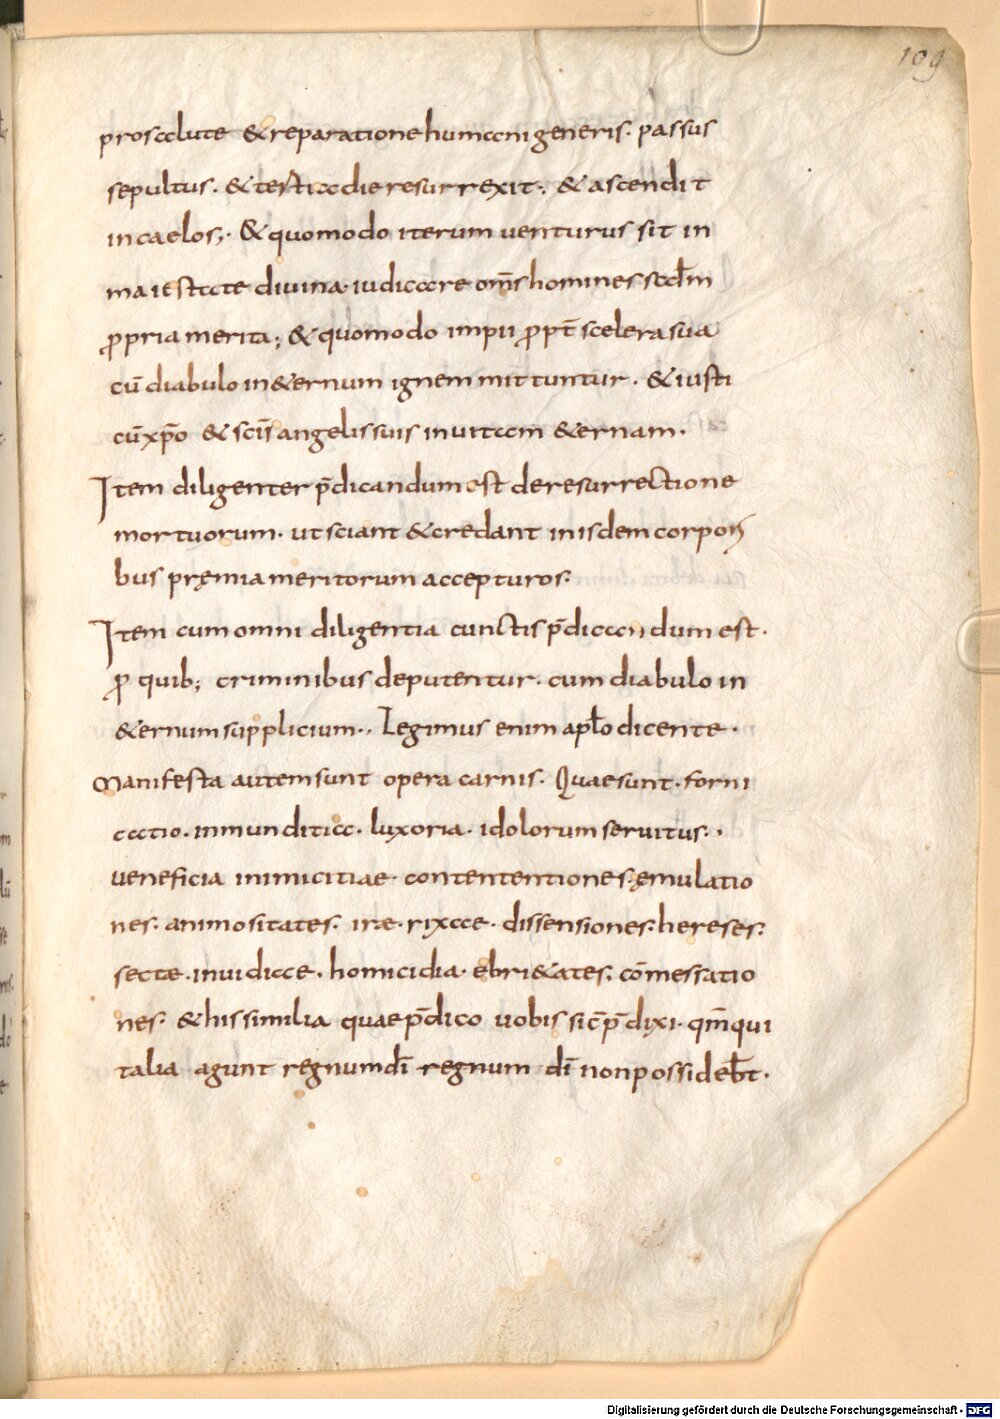 109
pro salute & reparatione humani generis. passus
sepultus. & tertia die resurrexit. & ascendit
in caelos; & quomodo iterum venturus sit in
maiestate divina. iudicare om̅s homines secd̅m
ꝓpria merita; & quomodo impii ꝓpt̅ scelera sua
cū diabulo in &ernum ignem mittuntur. & iusti
cū xp̅o & sc̅is angelis suis in vitam &ernam.
Item diligenter p̅dicandum est de resurrectione
mortuorum. ut sciant & credant in isdem corpori
bus pręmia meritorum accepturos.
Item cum omni diligentia cunctis p̅dicandum est.
ꝓ quib; criminibus deputentur. cum diabulo in
&ernum supplicium. Legimus enim apl̅o dicente.
Manifesta autem sunt opera carnis. Quae sunt. forni
catio. inmunditia. luxoria. idolorum servitus.
veneficia inimicitiae. contententiones. ęmulatio
nes. animositates. irae. rixae. dissensiones. hereses.
sectae. invidiae. homicidia. ebri&ates. cōmessatio
nes. & his similia quae p̅dico vobis sic̅ p̅dixi. qm̅ qui
talia agunt regnum dī regnum dī non possideb̅t.
Digitalisierung gefördert durch die Deutsche Forschungsgemeinschaft - DFG